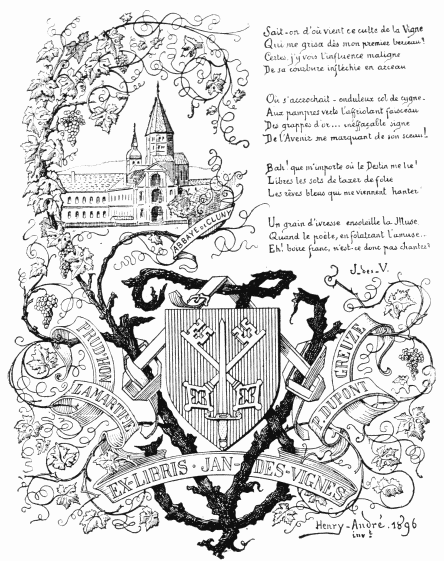 Sait-on d'où vient ce culte de la Vigne
Qui me grisa dès mon premier berceau?
Certes, j'y vois l'influence maligne
De sa courbure infléchie en arceau

Où s'accrochait - onduleux col de cygne -
Aux pampres verts l'affriolant faisceau
Des grappes d'or... ineffaçable signe
De l'Avenir me marquant de son sceau!

Bah! que m'importe où le Destin me lie!
Libres les sots de taxer de folie
Les rêves bleus qui me viennent hanter

Un grain d'ivresse ensoleille la Muse
Quand le poète, en folâtrant l'amuse..
Eh! boire franc, n'est-ce donc pas chanter?
J. des V.
ABBAYE DE CLUNY
PRUDHON
LAMARTINE
GREUZE
P. DUPONT
EX-LIBRIS · JAN-DES-VIGNES
Henry-André. 1896
invt